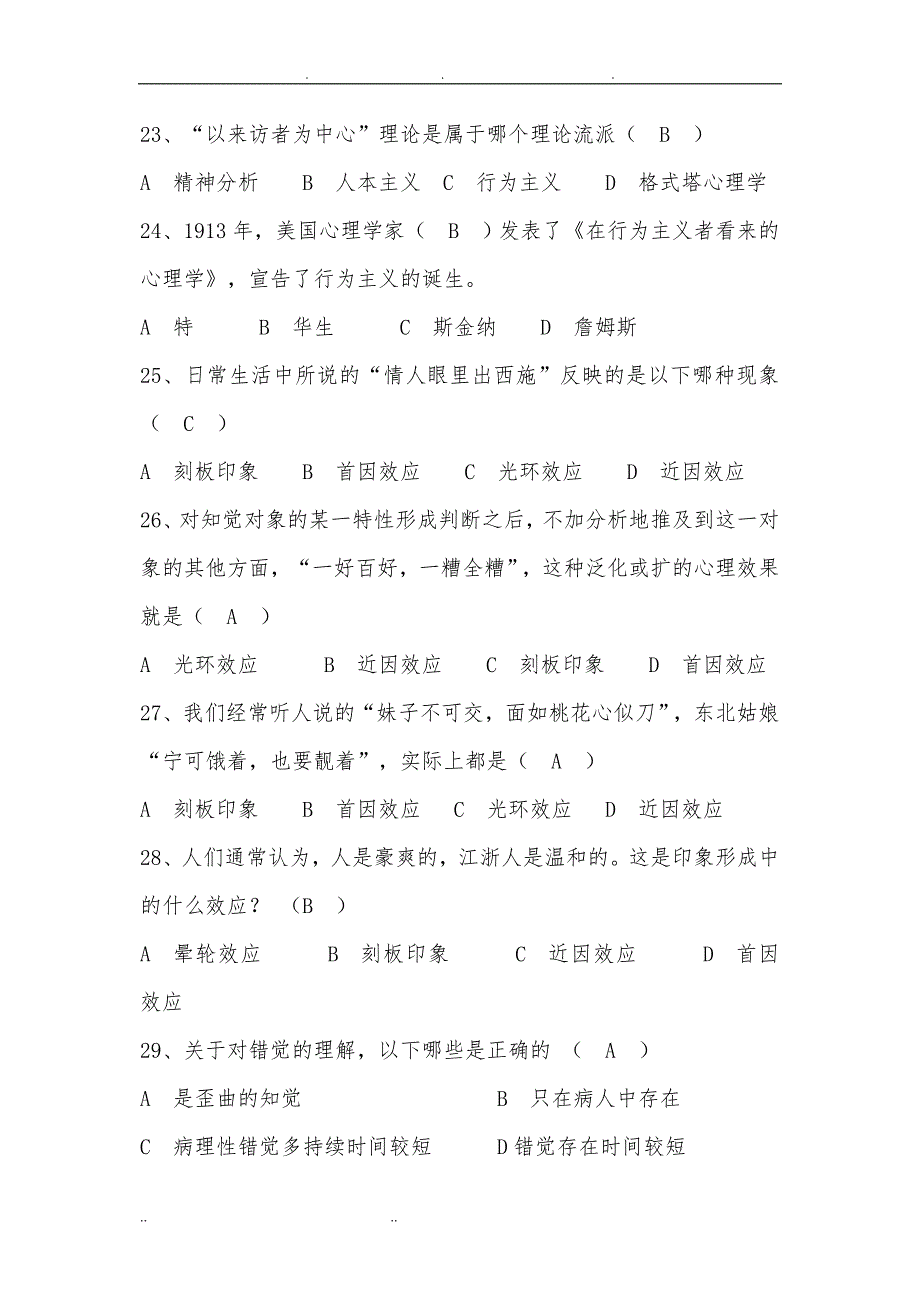 23、“以来访者为中心”理论是属于哪个理论流派（ B ）
A 精神分析 B 人本主义 C 行为主义 D 格式塔心理学
24、1913 年，美国心理学家（ B ）发表了《在行为主义者看来的
心理学》，宣告了行为主义的诞生。
A 特 B 华生 C 斯金纳 D 詹姆斯
25、日常生活中所说的“情人眼里出西施”反映的是以下哪种现象
（ C ）
A 刻板印象 B 首因效应 C 光环效应 D 近因效应
26、对知觉对象的某一特性形成判断之后，不加分析地推及到这一对
象的其他方面，“一好百好，一糟全糟”，这种泛化或扩的心理效果
就是（ A ）
A 光环效应 B 近因效应 C 刻板印象 D 首因效应
27、我们经常听人说的“妹子不可交，面如桃花心似刀”，东北姑娘
“宁可饿着，也要靓着”，实际上都是（ A ）
A 刻板印象 B 首因效应 C 光环效应 D 近因效应
28、人们通常认为，人是豪爽的，江浙人是温和的。这是印象形成中
的什么效应？ （B ）
A 晕轮效应 B 刻板印象 C 近因效应 D 首因
效应
29、关于对错觉的理解，以下哪些是正确的 （ A ）
A 是歪曲的知觉 B 只在病人中存在
C 病理性错觉多持续时间较短 D 错觉存在时间较短